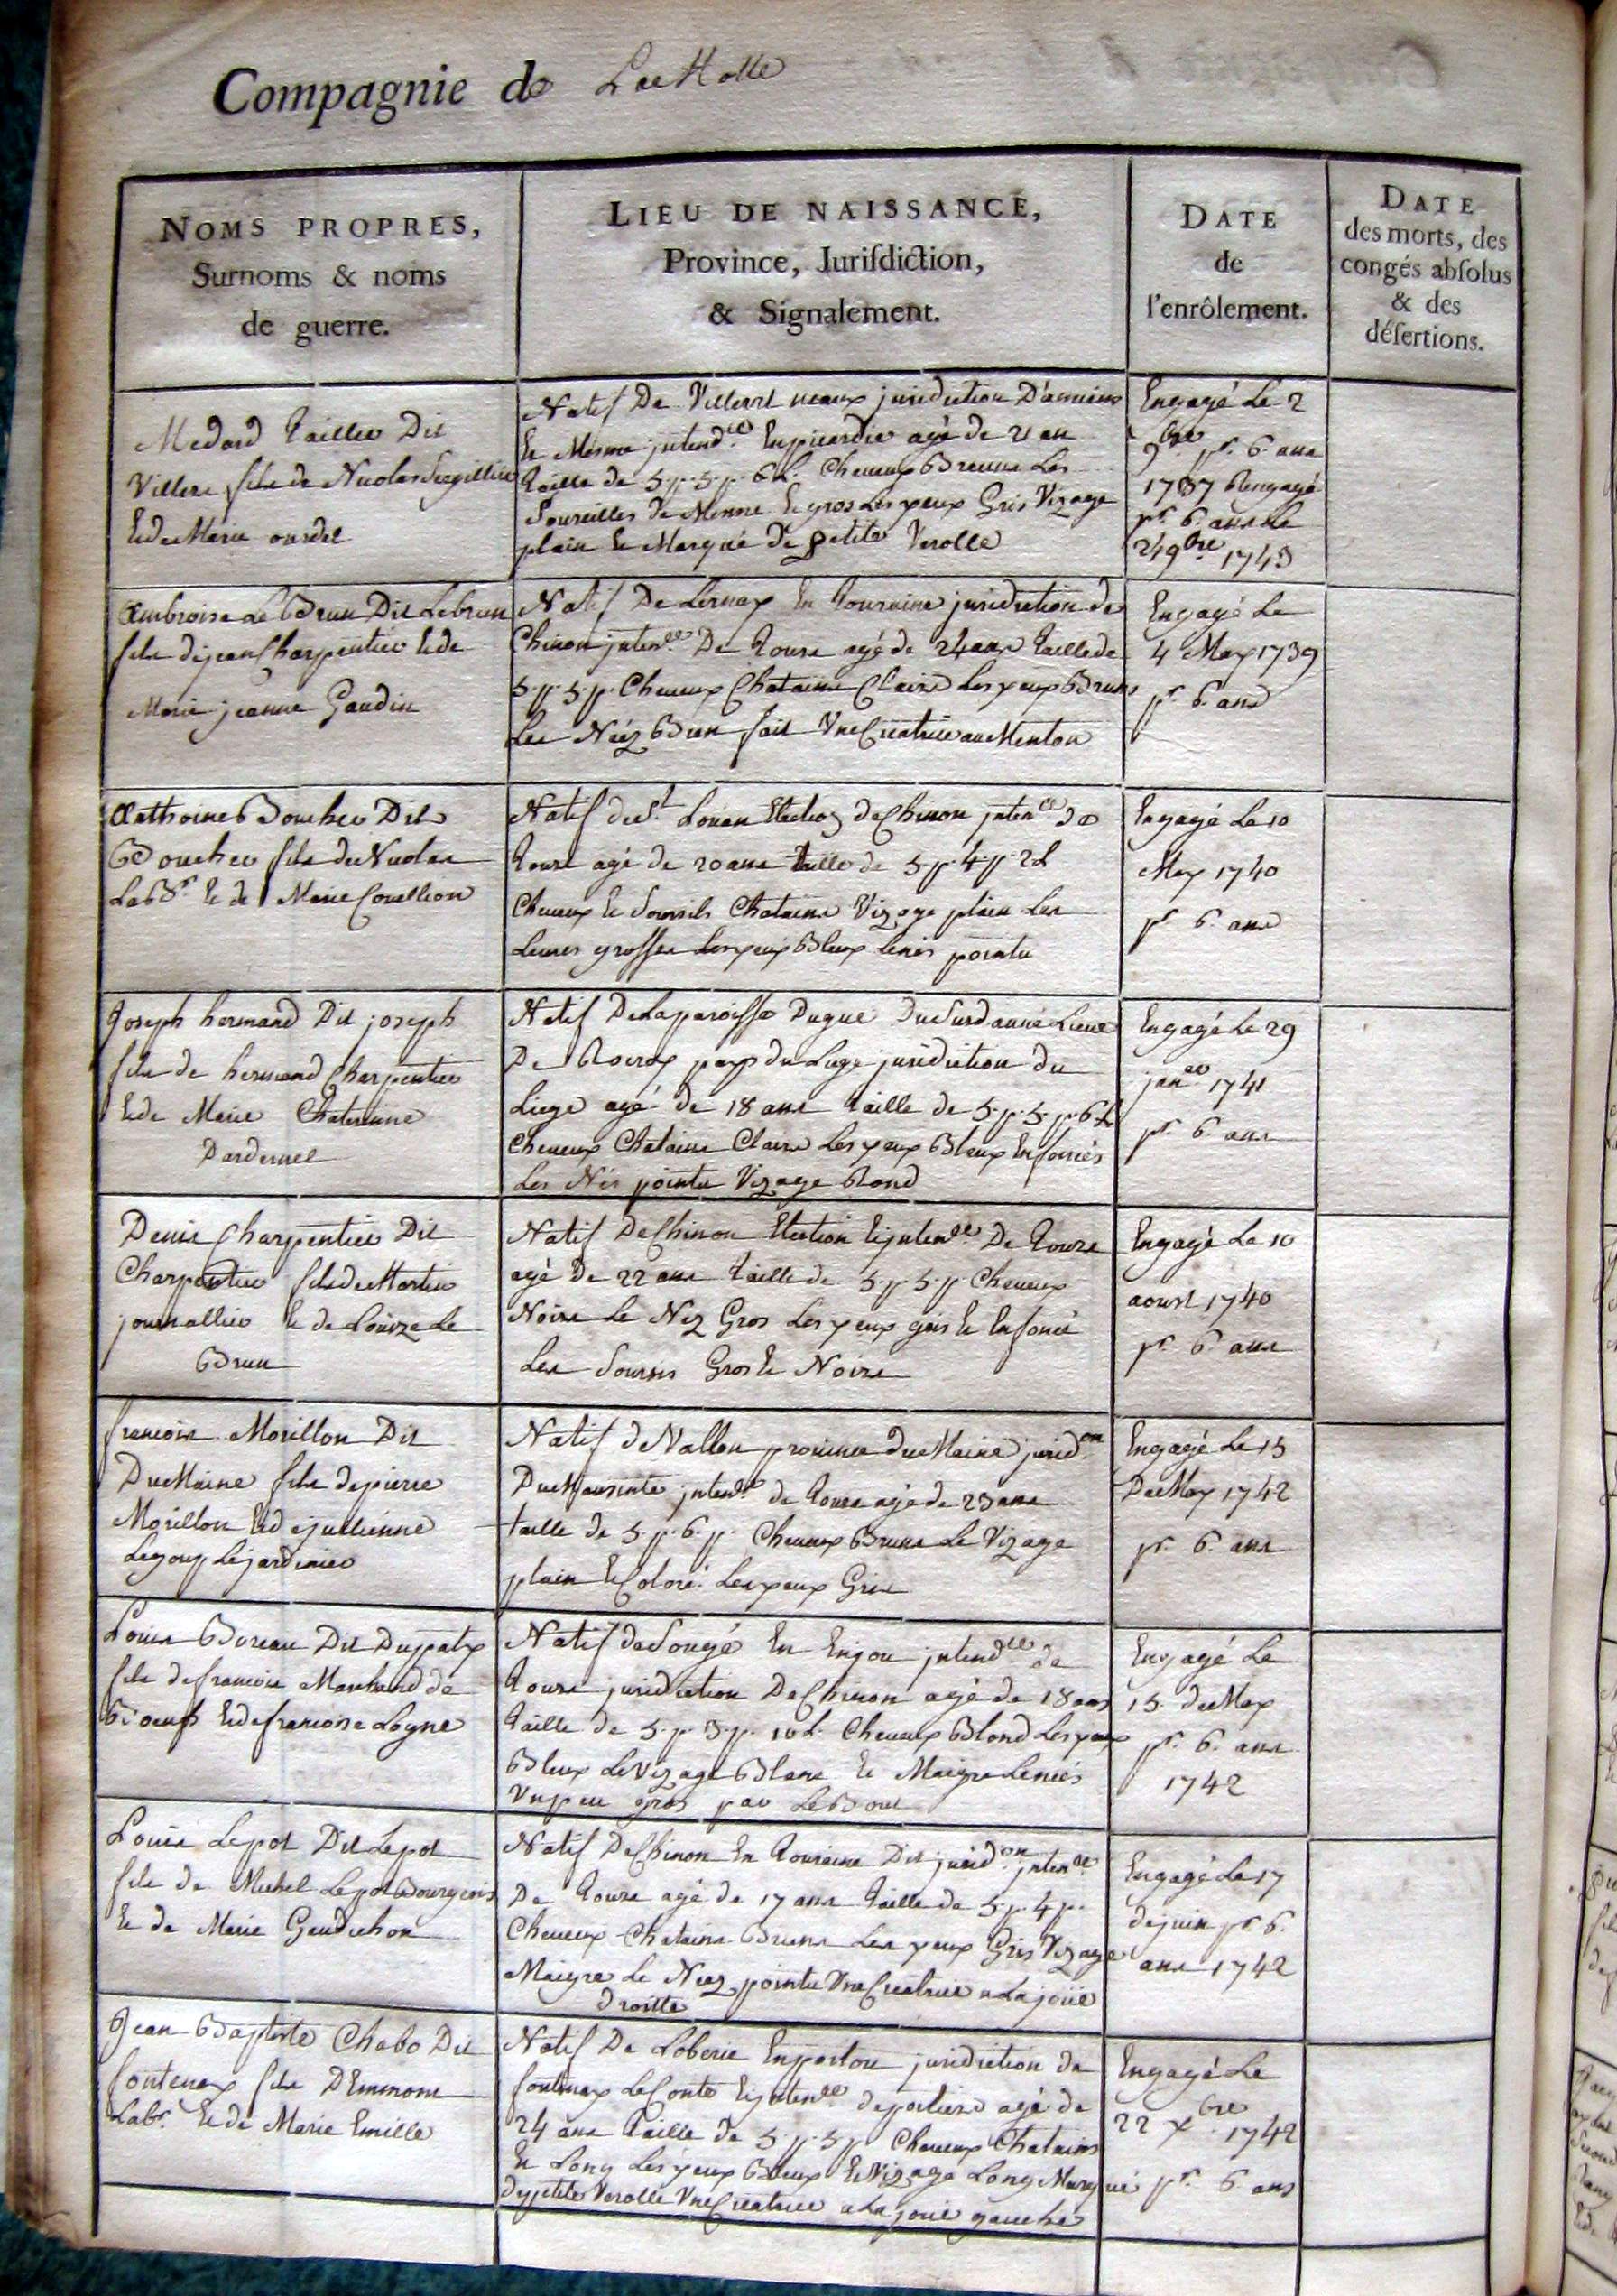 Compagnie de La Motte
NOMS PROPRES,
Surnoms & noms
de guerre.
LIEU DE NAISSANCE,
Province, Jurisdiction,
& Signalement.
DATE
de
l'enrôlement.
DATE
des morts, des
congés absolus
& des
désertions.
Medard Tailler Dit
Villers fils de Nicolas
Et de Marie ourdel
Natif De juridiction D'amiens
Et Mesme jntend.ce En picardie agé de 21 an
Taille de 5.p. 5.p. 6 L. Cheueux Breuns Les
Soureilles de Mesme Et gros Les yeux Gris Vizage
plain Et Marqué De petite Verolle
Engagé Le 2
9bre pr. 6. ans
1737 Rengagé
pr. 6. ans Le
24 9bre 1743
Ambroise Le Brun Dit Lebrun
fils de jean Charpentier Et de
Marie jeanne Gaudin
Natif De Lernay En Touraine juridiction de
Chinon jnten.ce De Tours agé de 24 ans Taille de
5.p. 5.p. Cheueux Chatains Clairs Les yeux Bruns
Les Néz Bien fait Vne Cicatrice au Menton
Engagé Le
4 May 1739
pr. 6. ans
Anthoine Boucher Dit
Boucher fils de Nicolas
Labr. Et de Marie Couillion
Natif de St. Louan Election de Chinon jnten.ce de
Tours agé de 20 ans taille de 5.p 4.p. 2 L
Cheueux Et Soursils Chatains Vizage plain Les
Leures grosses Les yeux Bleux Le nés pointu
Engagé Le 10
May 1740
pr 6. ans
Joseph hermand Dit joseph
fils de hermand Charpentier
Et de Marie Chaterinne
Dardennel
Natif De La paroisse Dugué
De Rocroy pays du Liege juridiction du
Liege agé de 18 ans taille de 5.p. 5.p. 6 L
Cheueux Chatains Clairs Les yeux Bleux Enfoncés
Les Nés pointu Vizage Rond
Engagé Le 29
jan.er 1741
pr 6. ans
Denis Charpentier Dit
Charpentier fils de Martin
journallier Et de Louize Le
Brun
Natif De Chinon Election Et jnten.ce De Tours
agé De 22 ans Taille de 5.p 5.p Cheueux
Noirs Le Nez Gros Les yeux gris Et Enfoncé
Les Soursis Gros Et Noirs
Engagé Le 10
aoust 1740
pr. 6. ans
francois Morillon Dit
Du Maine fils de pierre
Morillon Et de jullienne
Legouy Le jardinier
Natif de Vallon prouince du Maine jurid.on
Du Mans jnten.ce de Tours agé de 23 ans
taille de 5.p. 6.p. Cheueux Bruns Le Vizage
plain Et Coloré Les yeux Gris
Engagé Le 15
De May 1742
pr. 6. ans
Louis Boreau Dit Dupaty
fils de francois Marchand de
Boeufs Et de francoise Logne
Natif de Sougé En Enjou jntend.ce de
Tours juridiction De Chinon agé de 18 ans
Taille de 5.p. 3.p. 10 L. Cheueux Blond Les yeux
Bleux Le Vizage Blanc Et Maigre Le nés
Vn peu gros par Le Bout
Engagé Le
15. de May
pr. 6. ans
1742
Louis Lepot Dit Lepot
fils de Michel Lepot Bourgeois
Et de Marie Gaudichon
Natif De Chinon En Touraine Dit jurid.on jnten.ce
De Tours agé de 17 ans Taille de 5.p. 4.p.
Cheueux Chatains Bruns Les yeux Gris Vizage
Maigre Le Nez pointu Vne Cicatrice a La joüe
droitte
Engagé Le 17
de juin pr 6.
ans 1742
Jean Baptiste Chabo Dit
fontenay fils D'Emmom
Labr. Et de Marie Emille
Natif De Loberie En poitou juridiction de
fontenay Le Conte Et jnten.ce de poitiers agé de
24 ans Taille de 5.p. 5.p Cheueux Chatains
Et Long Les yeux Bleux Le Vizage Long Marqué
De petite Verolle Vne Cicatrice a La joüe gauche
Engagé Le
22 Xbre 1742
pr. 6 ans